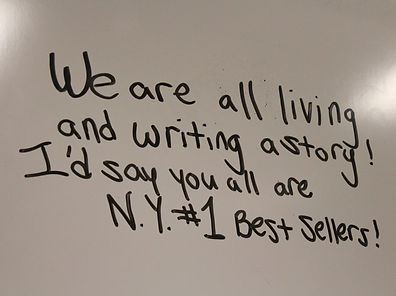 We are all living
and writing a story!
I'd say you all are
N.Y. #1 Best Sellers!